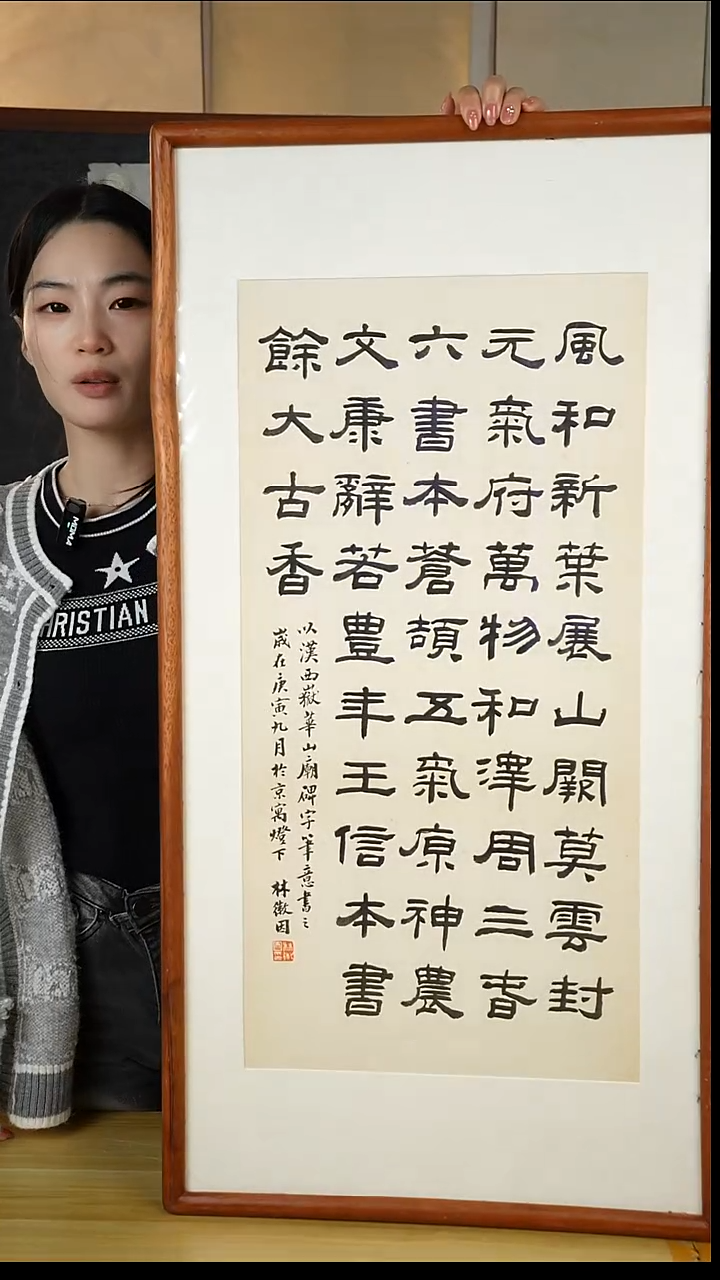 風和新葉展山闕莫雲封
元氣府萬物和澤周三旾
六書本蒼頡五氣原神農
文康辭若豊年王信本書
餘大古香
以漢西嶽華山廟碑字筆意書之
歲在庚寅九月於京寓燈下 林徽因
CHRISTIAN
MOMA